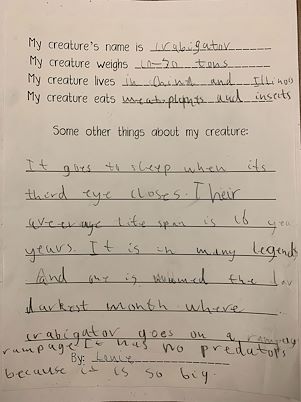 My creature's name is crabigator
My creature weighs 10-20 tons
My creature lives in China and Illinois
My creature eats meat, plants and insects
Some other things about my creature:
It goes to sleep when its
third eye closes. Their
average life span is 16 yea
years. It is in many legends
And one is named the dar
darkest month where
crabigator goes on a rampag
rampage It has no predators
By:
because it is so big.